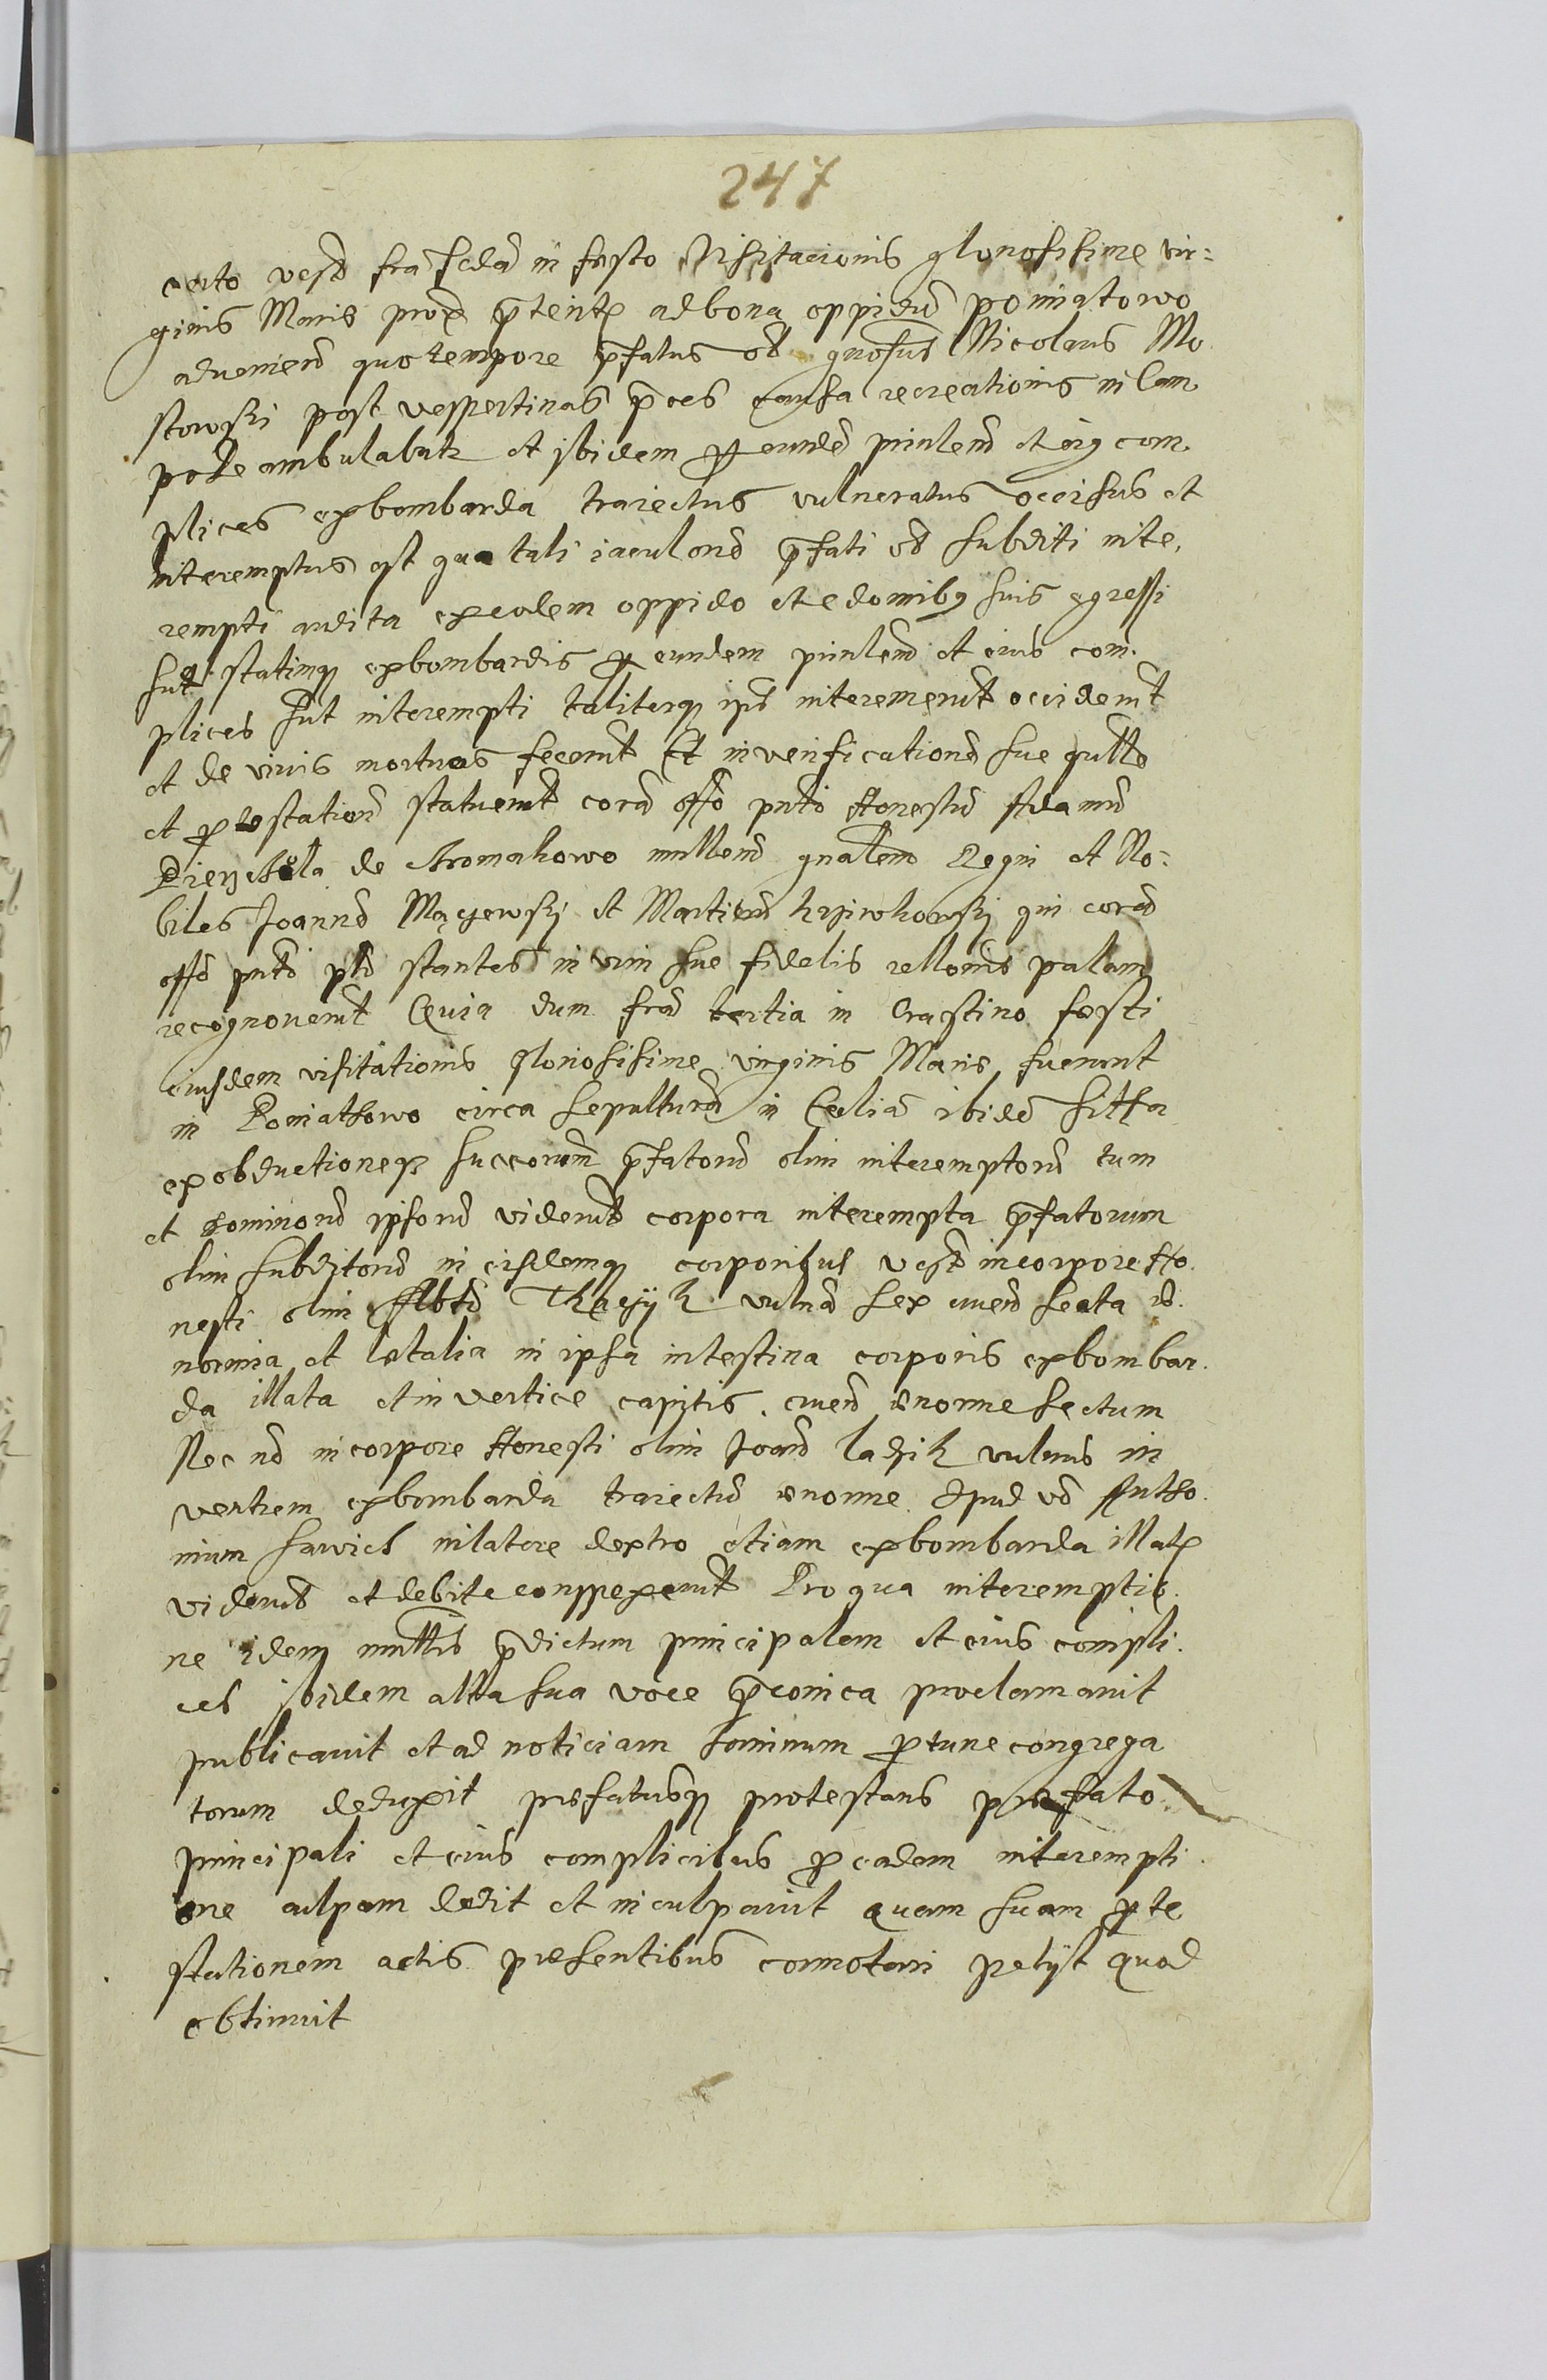 247
certo vesd fra scda in festo Visitacionis gloriosissime vir=
ginis Marie prox pteritę ad bona oppidu poniatowo
adveniend quo tempore pfatus od gnosus Nicolaus Mo
stowski post vespertinas pces causa recreationis in Cam
po deambulabat et ibidem p eunde prinlem et eiq com
plices exbombarda traiectus vulneratus occisus et
interemptus est qua tali iaculone pfati od subditi inte,
rempti audita ex eodem oppido et e domibq suis egressi
sut statimq exbombardis p eundem prinlem et eius com.
plices sut interempti taliterq ips interemerut occiderut
et de vivis mortuos fecerut Et in verificatione sue qulle
et ptestatione statuerut cora offo pnti Honestu Adamu
de Gromakowo mllem gnalem Regni et No=
biles Joanne Mączewskj et Martinu qui cora
offo pnti psl stantes in vim sue fidelis rellonis palam
recognoverut Quia dum fra tertia in Crastino festi
eiusdem visitationis gloriosissime virginis Marie fuerunt
in Poniathowo circa sepultura in Cclia ibide sitta
exobductioneq succorum pfatoru olim interemptoru tum
et hominoru ipsoru viderut corpora interempta pfatorum
olim subditoru in eisdemq corporibus vesd in corpore Ho
nesti olim Albti vulnera sex cruen secta e
normia et letalia in ipsa intestina corporis exbombar
da illata et in vertice capitis cruen enorme sectum
Nec no in corpore Honesti olim Joan Lasik vulnus in
ventrem exbombarda traiectu enorme Apud vo Antho
nium in latere dextro etiam exbombarda illatę
viderut et debite conspexerut Pro qua interemptio
ne idem mllis pdictum principalem et eius compli
ces ibidem alta sua voce pconica proclamavit
publicavit et ad noticiam hominum ptunc congrega
torum deduxit prefatusq protestans prefato
principali et eius complicibus p eadem interempti
one culpam dedit et inculpavit quam suam pte
stationem actis presentibus connotari petijt quod
obtinuit